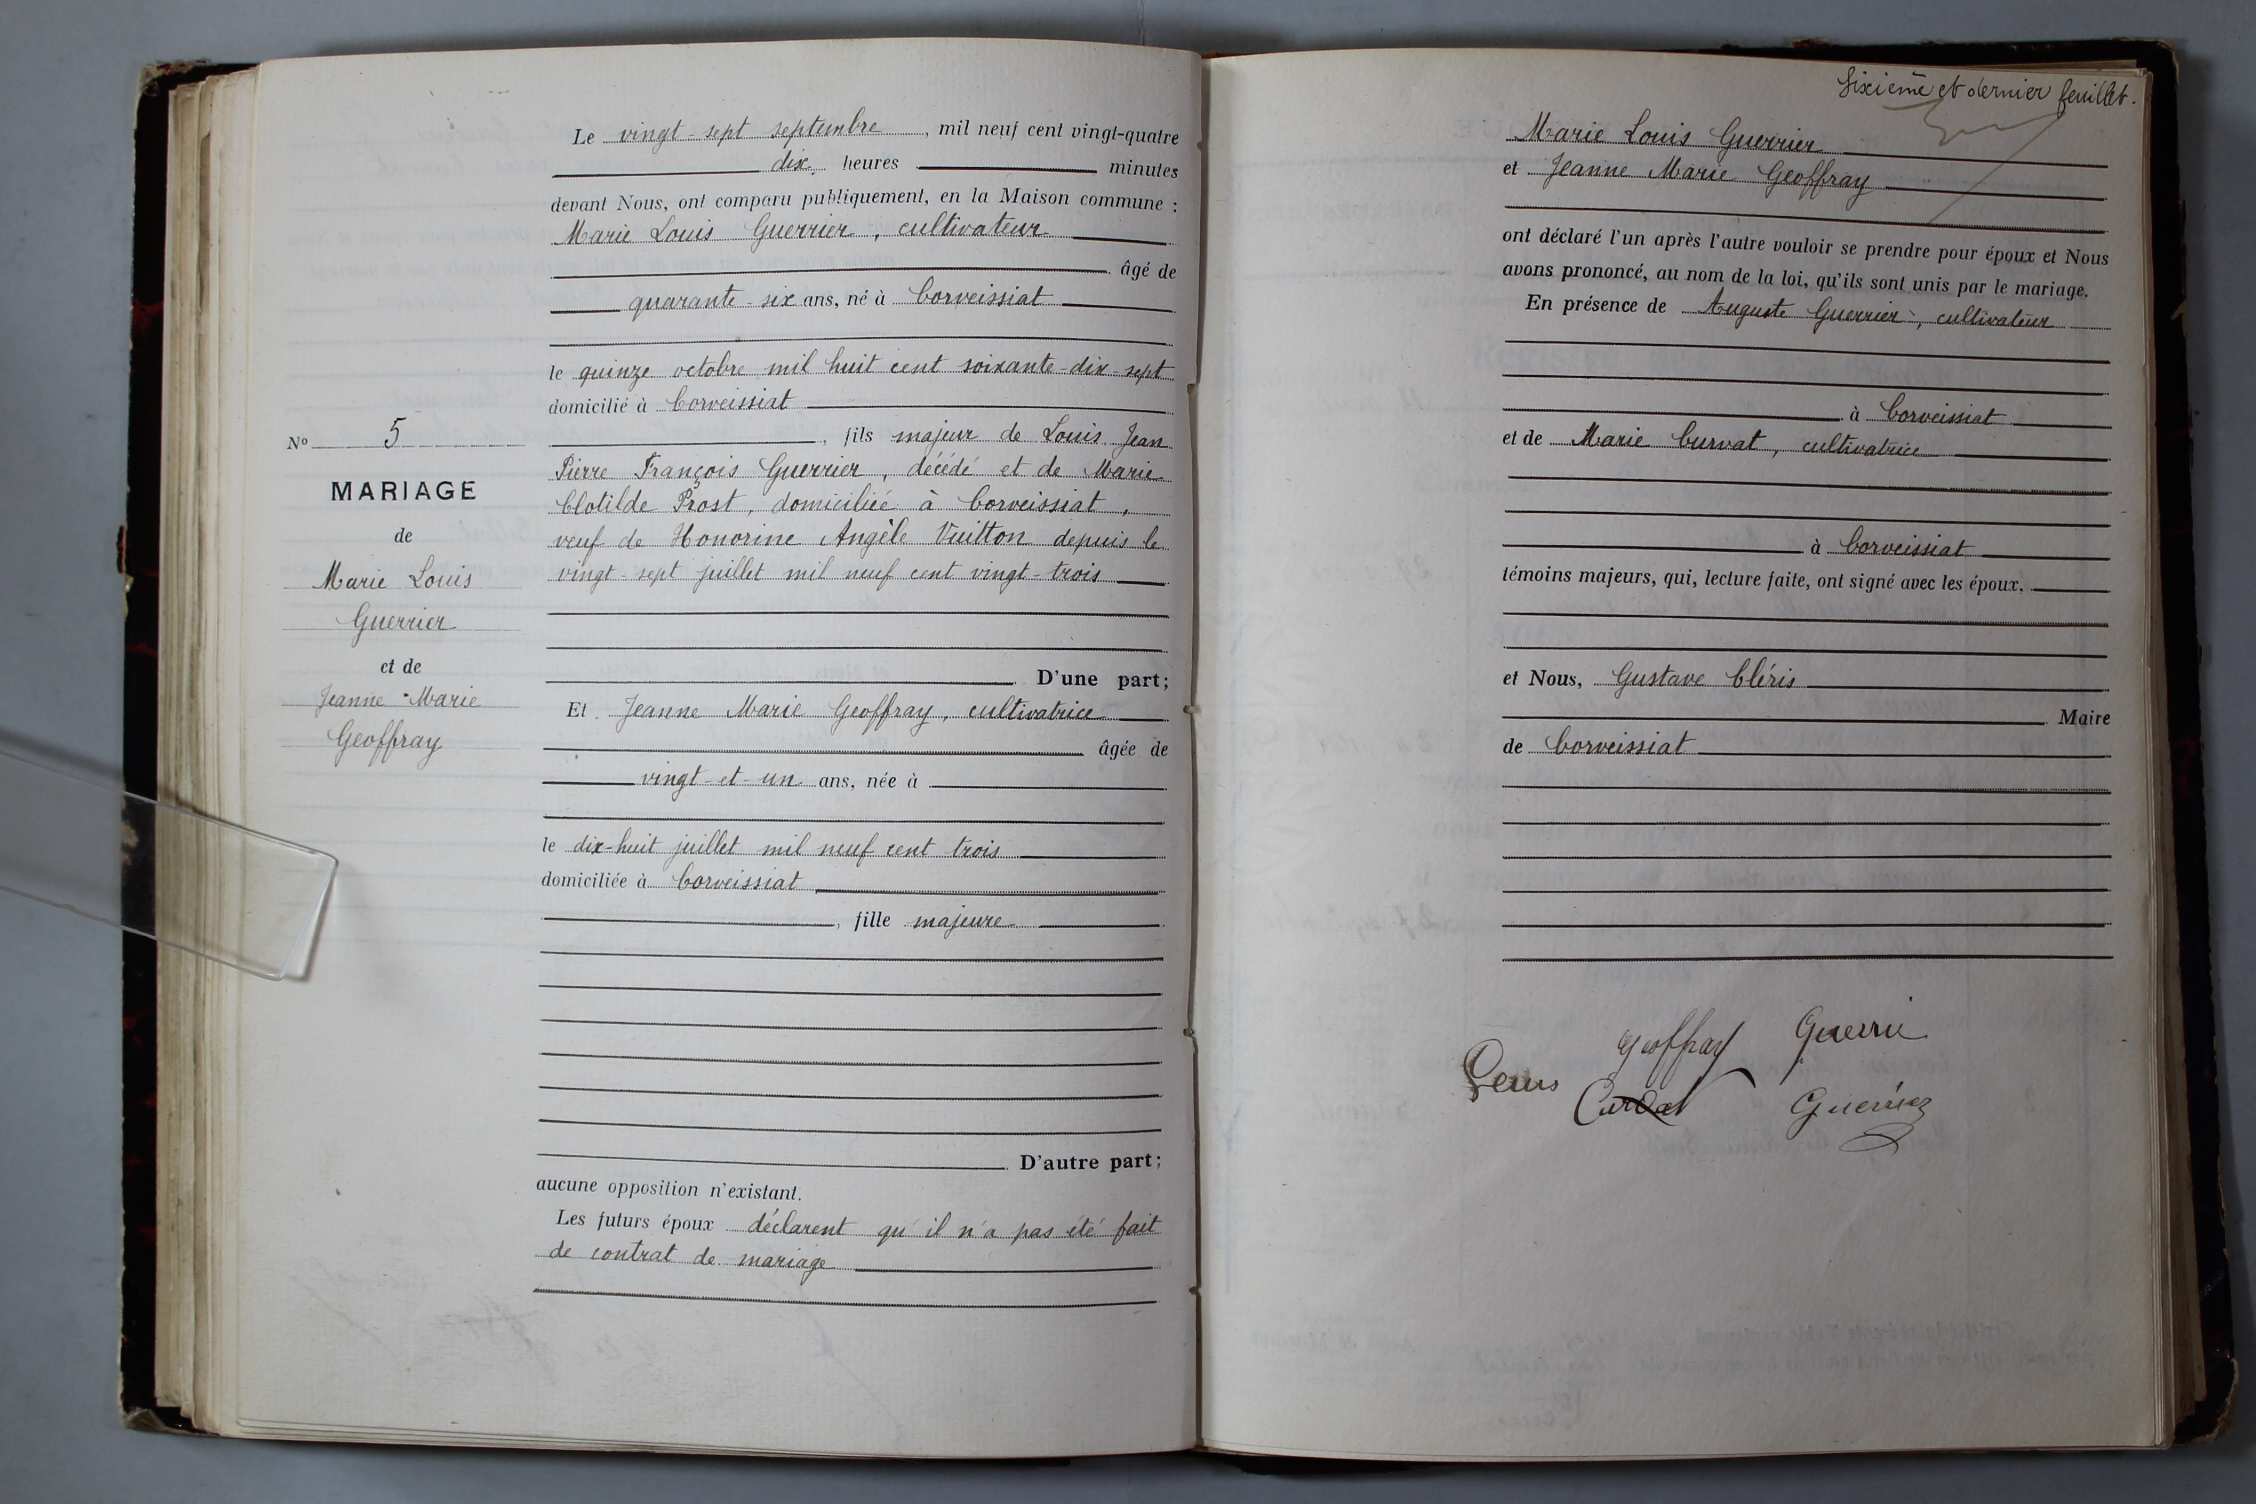 Le vingt-sept septembre, mil neuf cent vingt-quatre
dix, heures minutes
devant Nous, ont comparu publiquement, en la Maison commune :
Marie Louis Guerrier, cultivateur
âgé de
quarante-six ans, né à Corveissiat
le quinze octobre mil huit cent soixante-dix-sept
domicilié à Corveissiat
Nº 5
, fils majeur de Louis Jean
Pierre François Guerrier, décédé et de Marie
Clotilde Prost, domiciliée à Corveissiat,
veuf de Honorine Angèle Vuitton depuis le
vingt-sept juillet mil neuf cent vingt-trois
MARIAGE
de
Marie Louis
Guerrier
et de
Jeanne Marie
Geoffray
D'une part;
Et Jeanne Marie Geoffray, cultivatrice
âgée de
vingt-et-un ans, née à
le dix-huit juillet mil neuf cent trois
domiciliée à Corveissiat
, fille majeure
D'autre part;
aucune opposition n'existant.
Les futurs époux déclarent qu'il n'a pas été fait
de contrat de mariage
Sixième et dernier feuillet.
Marie Louis Guerrier
et Jeanne Marie Geoffray
ont déclaré l'un après l'autre vouloir se prendre pour époux et Nous
avons prononcé, au nom de la loi, qu'ils sont unis par le mariage.
En présence de Auguste Guerrier, cultivateur
à Corveissiat
et de Marie Curvat, cultivatrice
à Corveissiat
témoins majeurs, qui, lecture faite, ont signé avec les époux.
et Nous, Gustave Cléris
Maire
de Corveissiat
Geoffray Guerrie